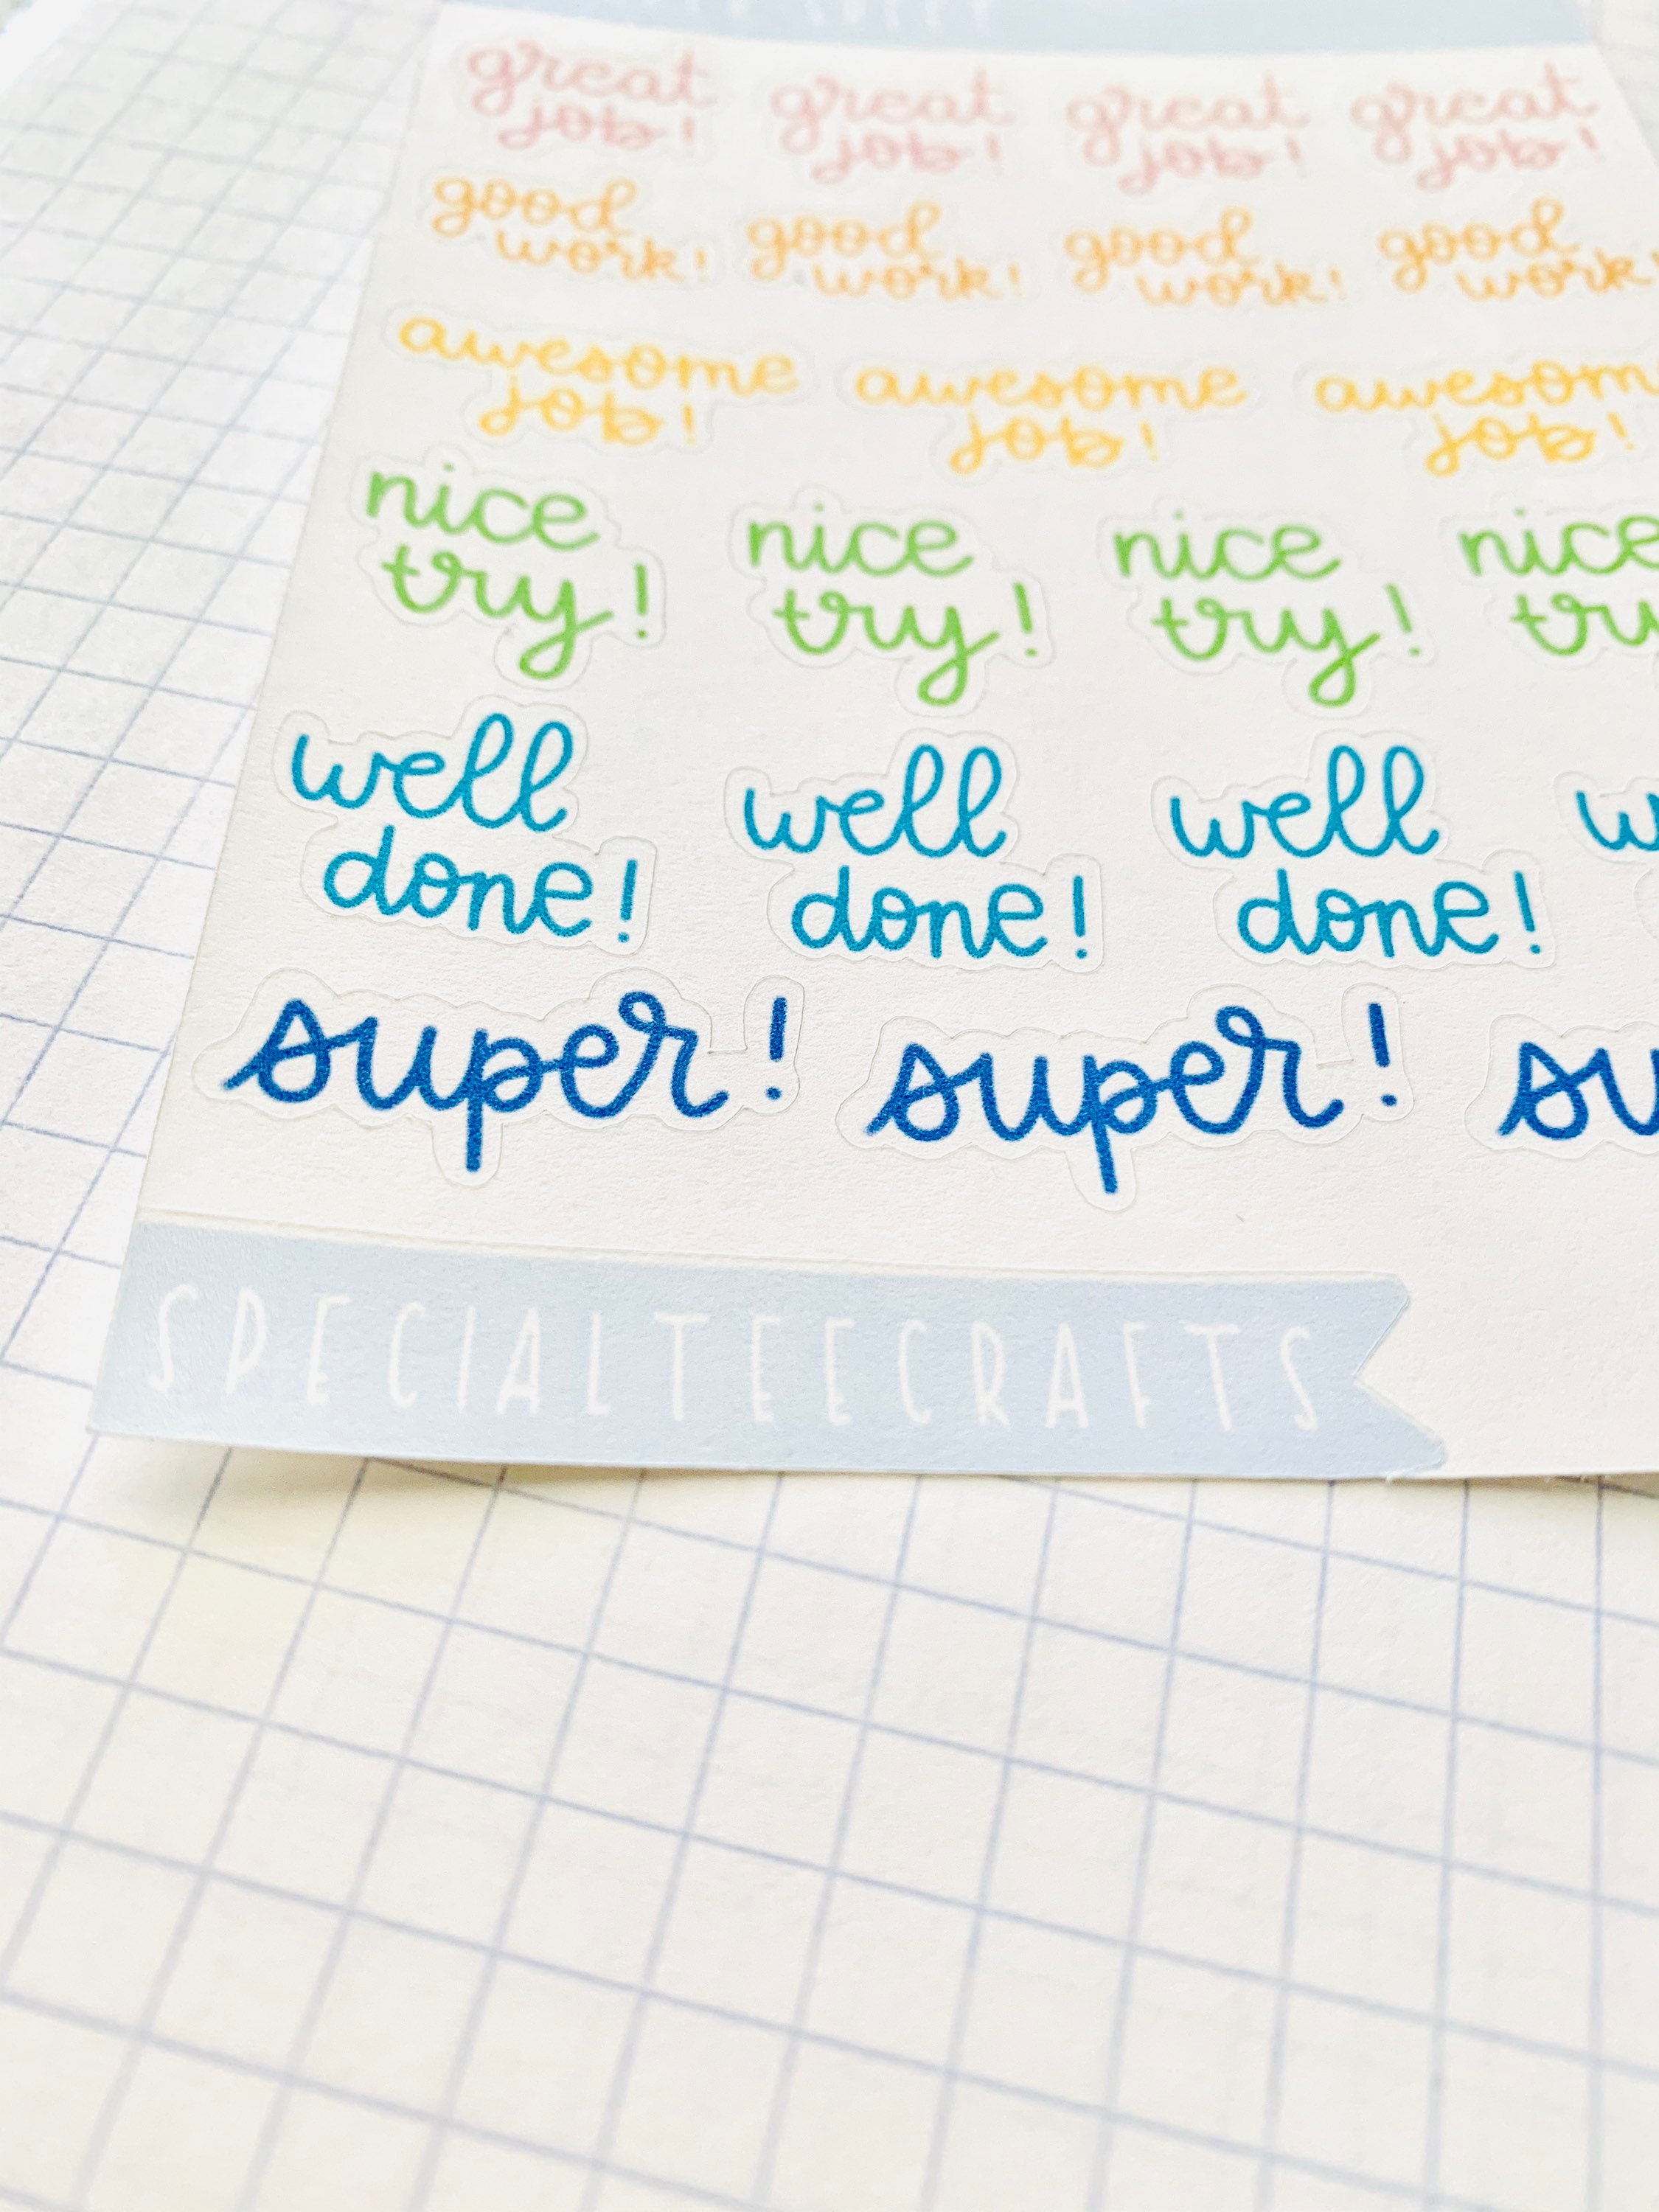 great great great great
job! job! job! job!
good good good good
work! work! work! work!
awesome awesome awesom
job! job! job!
nice nice nice nice
try! try! try! try
well well well w
done! done! done!
super! super! su
SPECIALTEECRAFTS